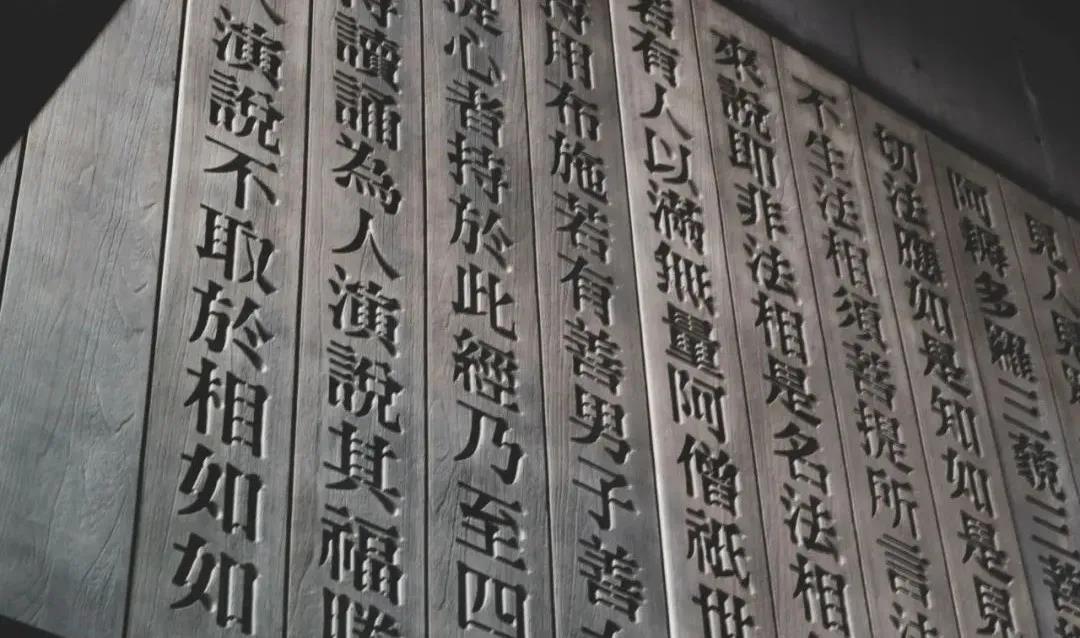 見人見
阿耨多羅三藐三菩
切法應如是知如是見
不生法相須菩提所言法
來說即非法相是名法相
若有人以滿無量阿僧祇世
持用布施若有善男子善
提心者持於此經乃至四
持讀誦為人演說其福勝
人演說不取於相如如